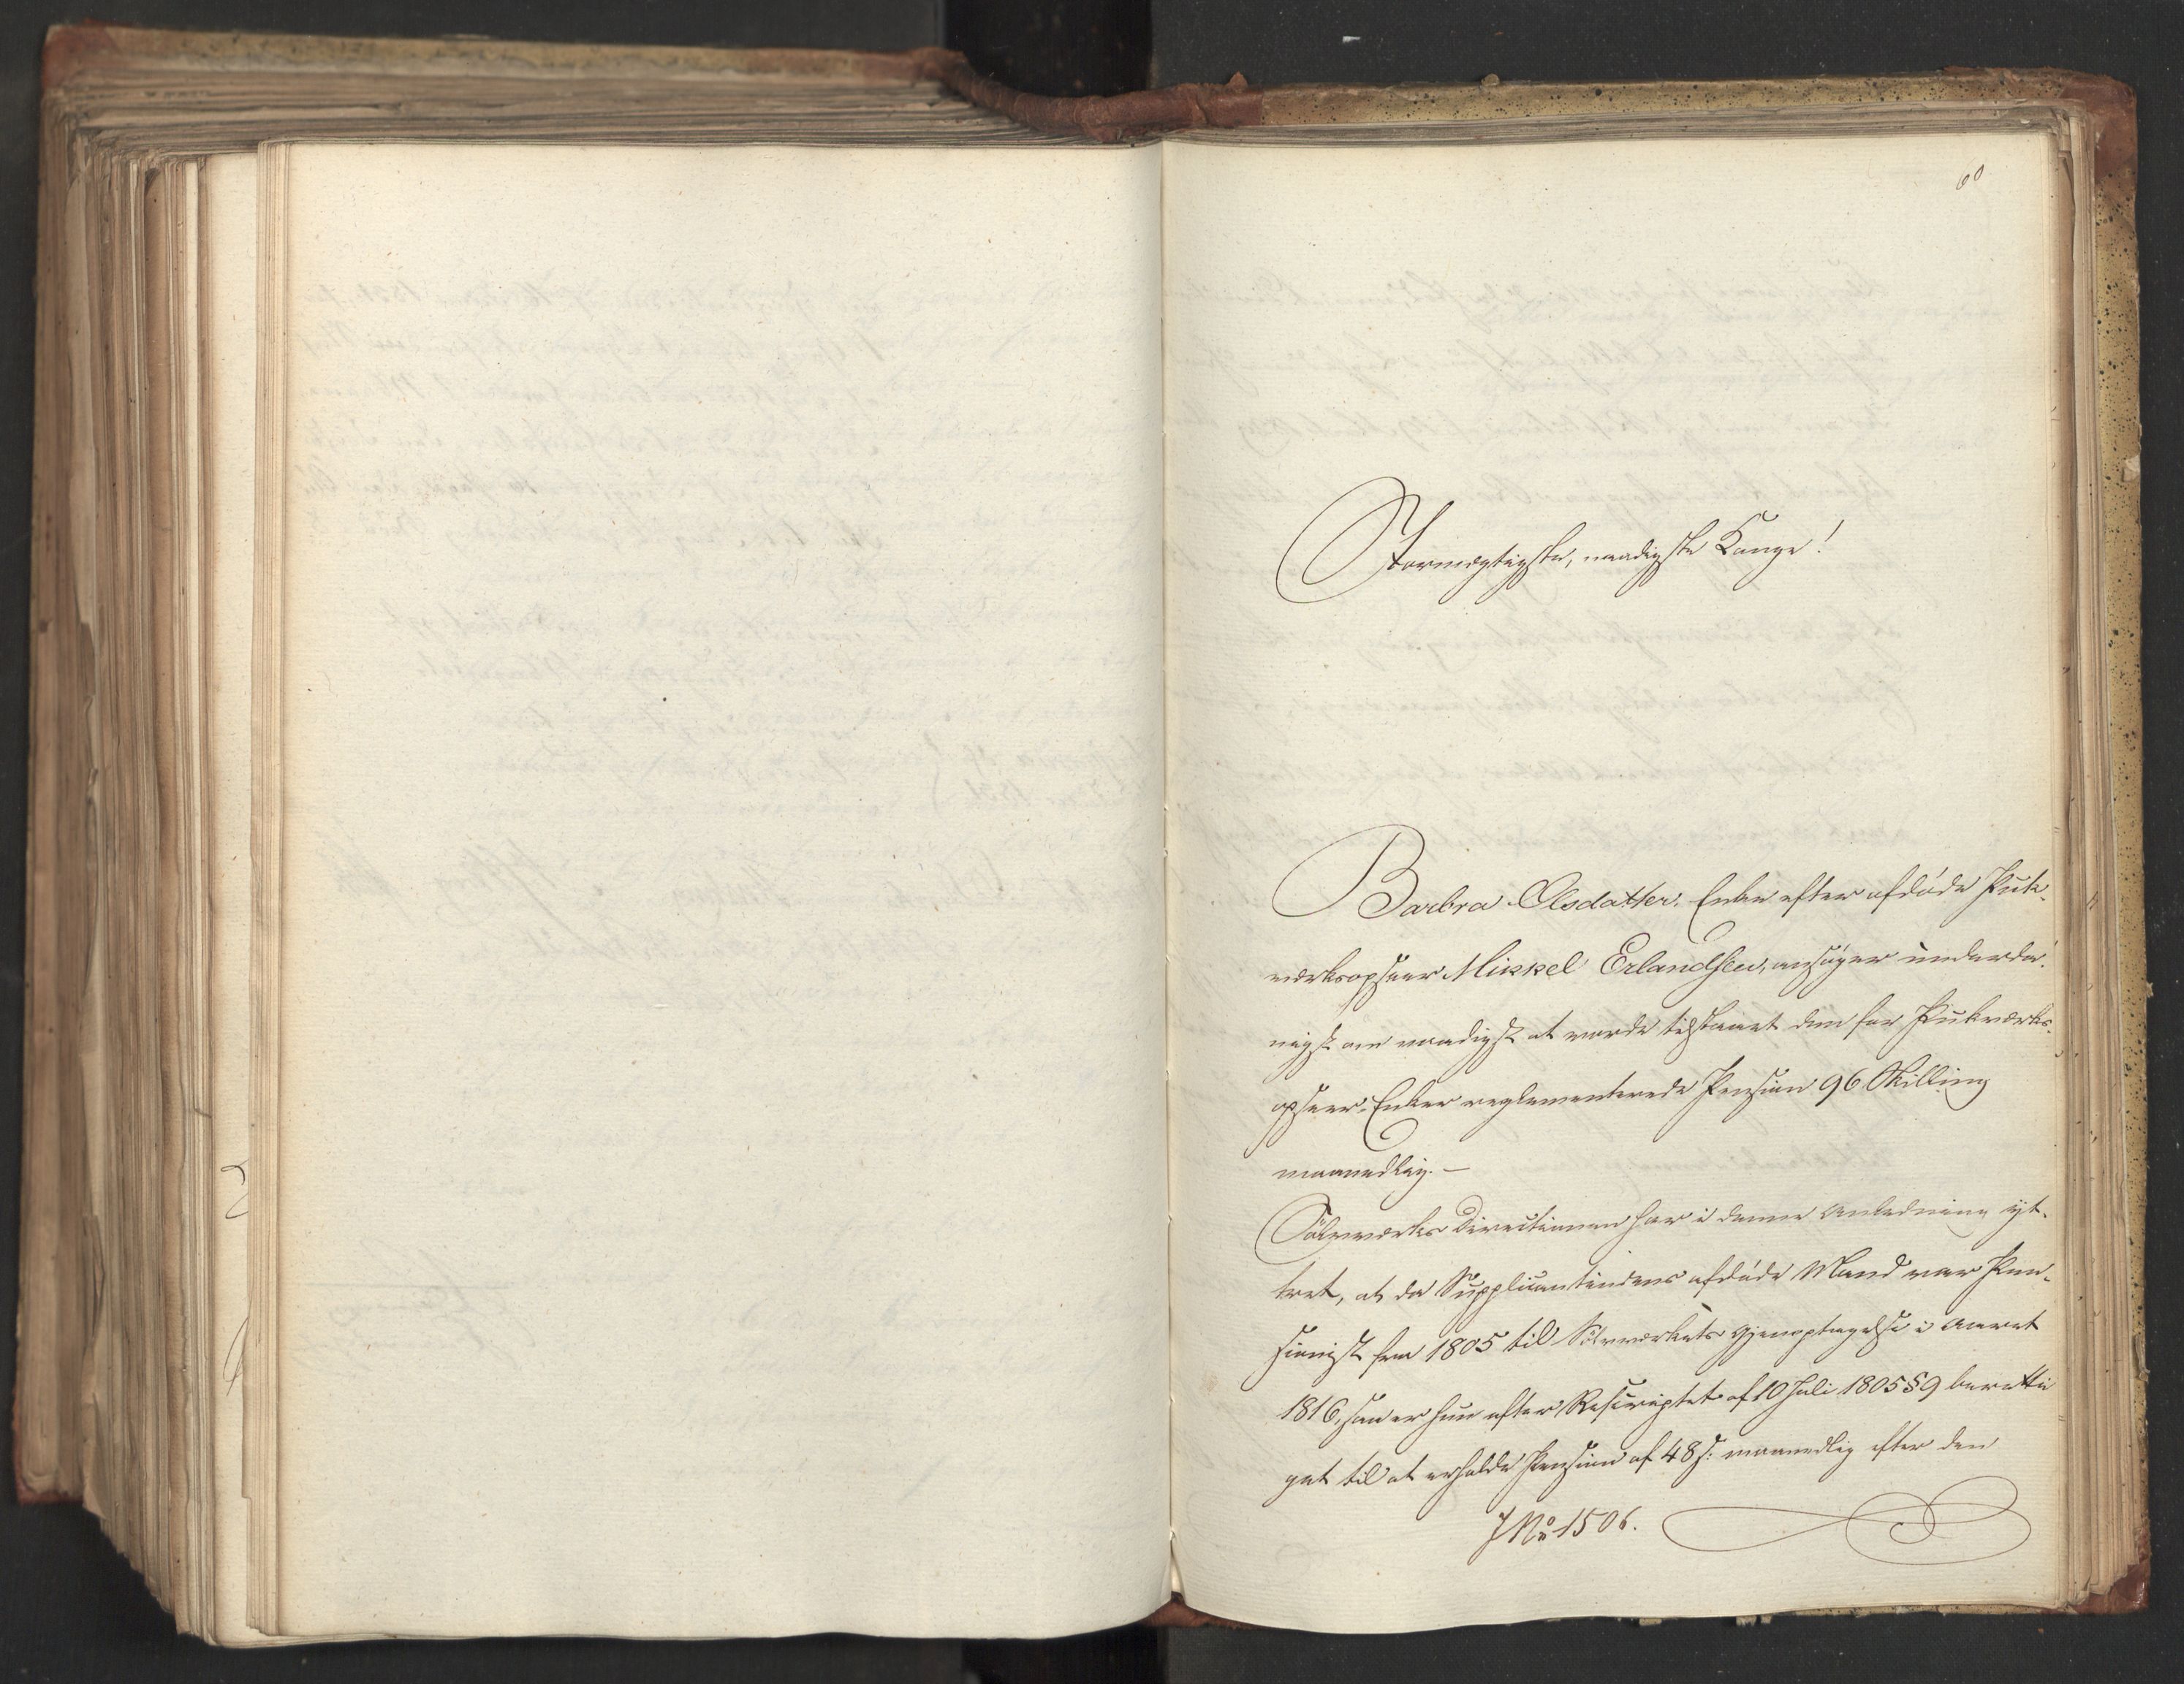 60
Stormægtigste, naadigste Konge!
Barbra Olsdatter, Enke efter afdøde Puk-
værksopseer Mikkel Erlandsen, ansøger underda-
nigst om naadigst at vorde tilstaaet den for Pukværks-
opseer-Enker reglementerede Pension 96 Skilling
maanedlig. –
Sølvværks Directionen har i denne Anledning yt-
tret, at da Supplicantindens afdøde Mand var Pen-
sionist fra 1805 til Sølvværkets Gjenoptagelse i Aaret
1816, saa er hun efter Rescriptet af 10 Juli 1805 § 9 beretti
get til at erholde Pension af 48 s: maanedlig efter den
J No 1506.